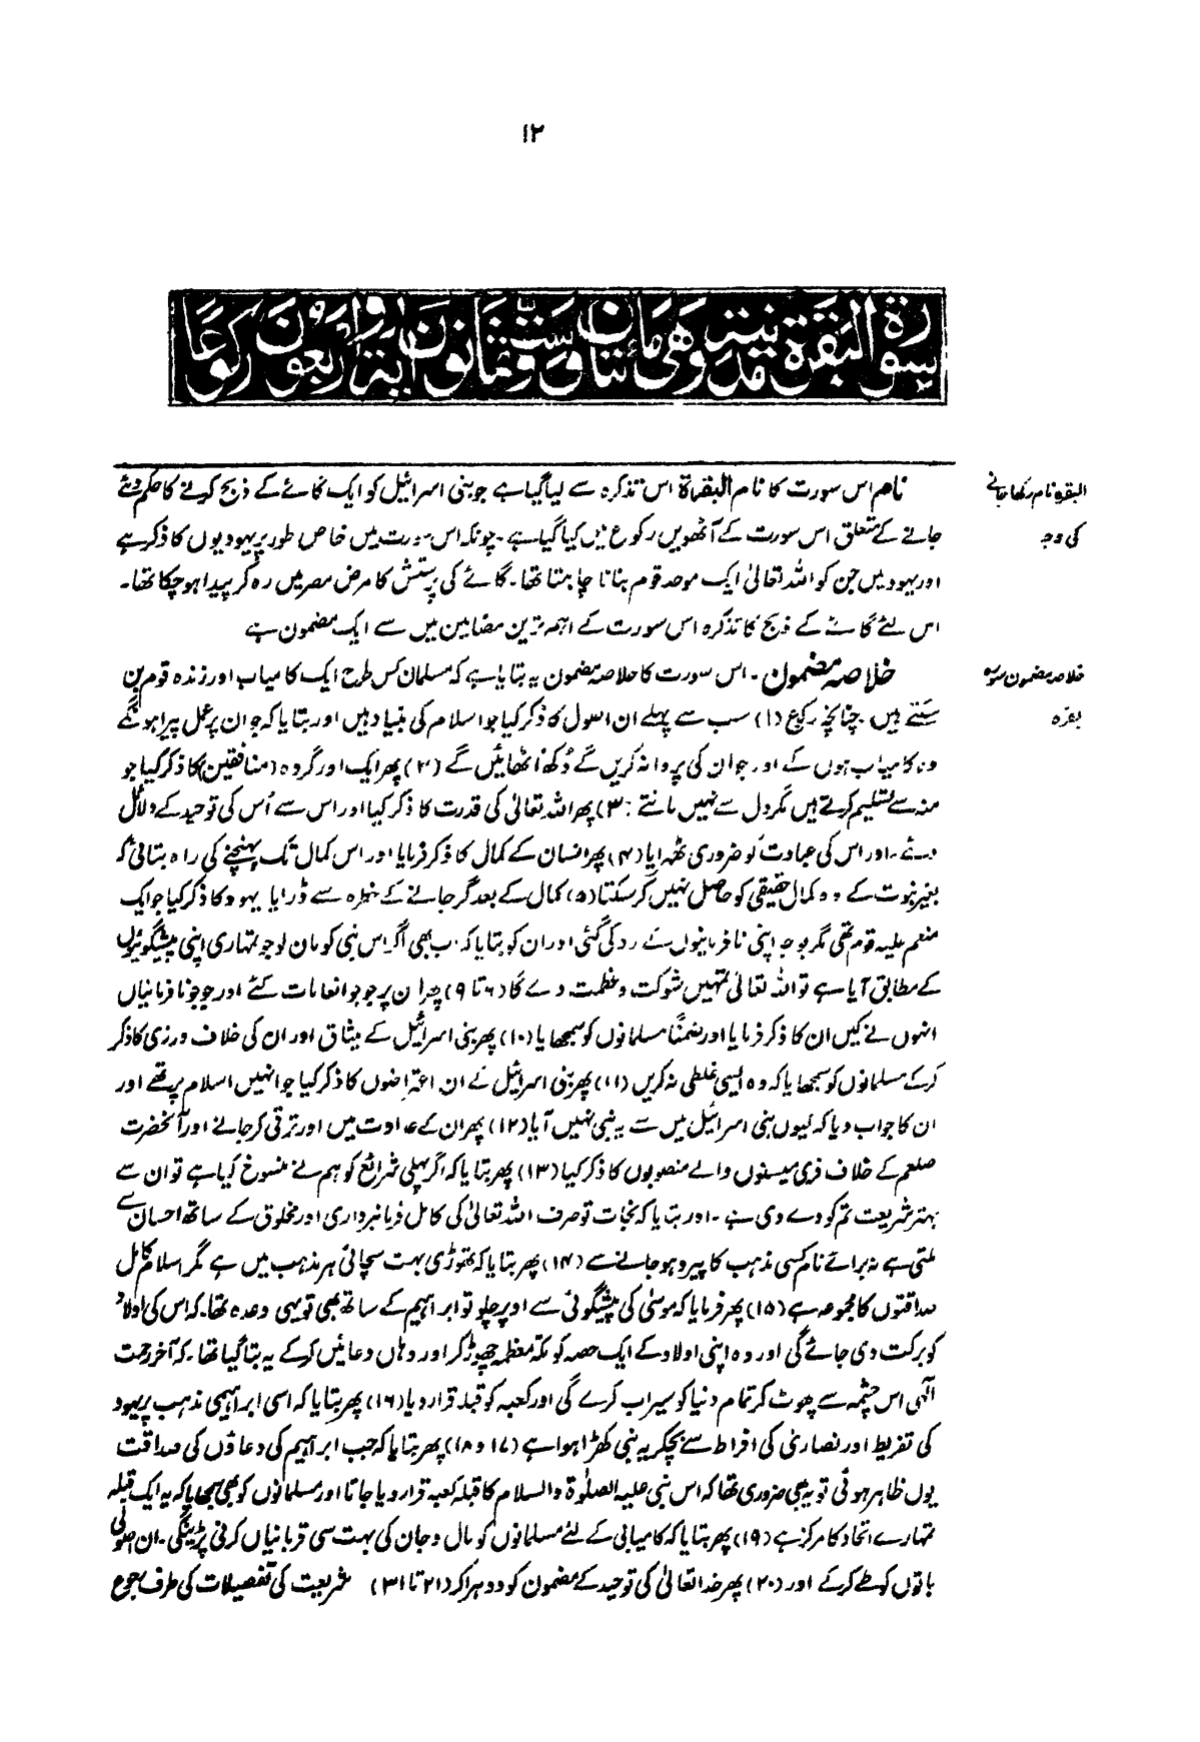 ۱۲
سورة البقرة مدنية وهي مائتان وست وثمانون اية واربعون ركوعا
البقرہ نام رکھا جانے
کی وجہ
نام اس سورت کا نام البقرۃ اس تذکرہ سے لیا گیا ہے جو بنی اسرائیل کو ایک گائے کے ذبح کرنے کا حکم دئے
جانے کے متعلق اس سورت کے آٹھویں رکوع میں کیا گیا ہے ۔ چونکہ اس سورت میں خاص طور پر یہودیوں کا ذکر ہے
اور یہود میں جن کو اللہ تعالیٰ ایک موحد قوم بنانا چاہتا تھا ۔ گائے کی پرستش کا مرض مصر میں رہ کر پیدا ہو چکا تھا ۔
اس لئے گائے کے ذبح کا تذکرہ اس سورت کے اہم ترین مضامین میں سے ایک مضمون ہے
خلاصہ مضمون سورہ
بقرہ
خلاصہ مضمون ۔ اس سورت کا خلاصہ مضمون یہ بتایا ہے کہ مسلمان کس طرح ایک کامیاب اور زندہ قوم بن
سکتے ہیں چنانچہ رکوع (۱) سب سے پہلے ان اصول کا ذکر کیا جو اسلام کی بنیاد ہیں اور بتایا کہ جو ان پر عمل پیرا ہونگے
وہ کامیاب ہوں گے اور جو ان کی پروا نہ کریں گے دُکھ اٹھائیں گے (۲) پھر ایک اور گروہ (منافقین) کا ذکر کیا جو
منہ سے تسلیم کرتے ہیں مگر دل سے نہیں مانتے (۳) پھر اللہ تعالیٰ کی قدرت کا ذکر کیا اور اس سے اُس کی توحید کے دلائل
دئے ۔ اور اس کی عبادت کو ضروری ٹھہرایا (۴) پھر انسان کے کمال کا ذکر فرمایا اور اس کمال تک پہنچنے کی راہ بتائی کہ
بغیر نبوت کے وہ کمال حقیقی کو حاصل نہیں کر سکتا (۵) کمال کے بعد گر جانے کے خطرہ سے ڈرایا یہود کا ذکر کیا جو ایک
منعم علیہ قوم تھی مگر بوجہ اپنی نافرمانیوں کے رد کی گئی اور ان کو بتایا کہ اب بھی اگر اس نبی کو مان لو جو تمہاری اپنی پیشگوئیوں
کے مطابق آیا ہے تو اللہ تعالیٰ تمہیں شوکت و عظمت دے گا (۶ تا ۹) پھر ان پر جو جو انعامات کئے اور جو جو نافرمانیاں
انہوں نے کیں ان کا ذکر فرمایا اور ضمناً مسلمانوں کو سمجھایا (۱۰) پھر بنی اسرائیل کے میثاق اور ان کی خلاف ورزی کا ذکر
کر کے مسلمانوں کو سمجھایا کہ وہ ایسی غلطی نہ کریں (۱۱) پھر بنی اسرائیل کے ان اعتراضوں کا ذکر کیا جو انہیں اسلام پر تھے اور
ان کا جواب دیا کہ کیوں بنی اسرائیل میں سے یہ نبی نہیں آیا (۱۲) پھر ان کے عداوت میں اور ترقی کر جانے اور آنحضرت
صلعم کے خلاف فری میسنوں والے منصوبوں کا ذکر کیا (۱۳) پھر بتایا کہ اگر پہلی شرائع کو ہم نے منسوخ کیا ہے تو ان سے
بہتر شریعت تم کو دے دی ہے ۔ اور بتایا کہ نجات تو صرف اللہ تعالیٰ کی کامل فرمانبرداری اور مخلوق کے ساتھ احسان سے
ملتی ہے نہ برائے نام کسی مذہب کا پیرو ہو جانے سے (۱۴) پھر بتایا کہ تھوڑی بہت سچائی ہر مذہب میں ہے مگر اسلام کامل
صداقتوں کا مجموعہ ہے (۱۵) پھر فرمایا کہ موسیٰ کی پیشگوئی سے اوپر چلو تو ابراہیم کے ساتھ بھی تو یہی وعدہ تھا ۔ کہ اس کی اولاد
کو برکت دی جائے گی اور وہ اپنی اولاد کے ایک حصہ کو مکہ معظمہ چھوڑ کر اور وہاں دعائیں کر کے یہ بتا گیا تھا ۔ کہ آخر رحمت
الٰہی اس چشمہ سے پھوٹ کر تمام دنیا کو سیراب کرے گی اور کعبہ کو قبلہ قرار دیا (۱۶) پھر بتایا کہ اسی ابراہیمی مذہب پر یہود
کی تفریط اور نصاریٰ کی افراط سے بچکر یہ نبی کھڑا ہوا ہے (۱۷ و ۱۸) پھر بتایا کہ جب ابراہیم کی دعاؤں کی صداقت
یوں ظاہر ہوئی تو یہ بھی ضروری تھا کہ اس نبی علیہ الصلوٰۃ والسلام کا قبلہ کعبہ قرار دیا جاتا اور مسلمانوں کو بھی سمجھایا کہ یہ ایک قبلہ
تمہارے اتحاد کا مرکز ہے (۱۹) پھر بتایا کہ کامیابی کے لئے مسلمانوں کو مال و جان کی بہت سی قربانیاں کرنی پڑینگی ۔ ان اصولی
باتوں کو طے کر کے اور (۲۰) پھر خدا تعالیٰ کی توحید کے مضمون کو دوہرا کر (۲۱ تا ۳۱) شریعت کی تفصیلات کی طرف رجوع